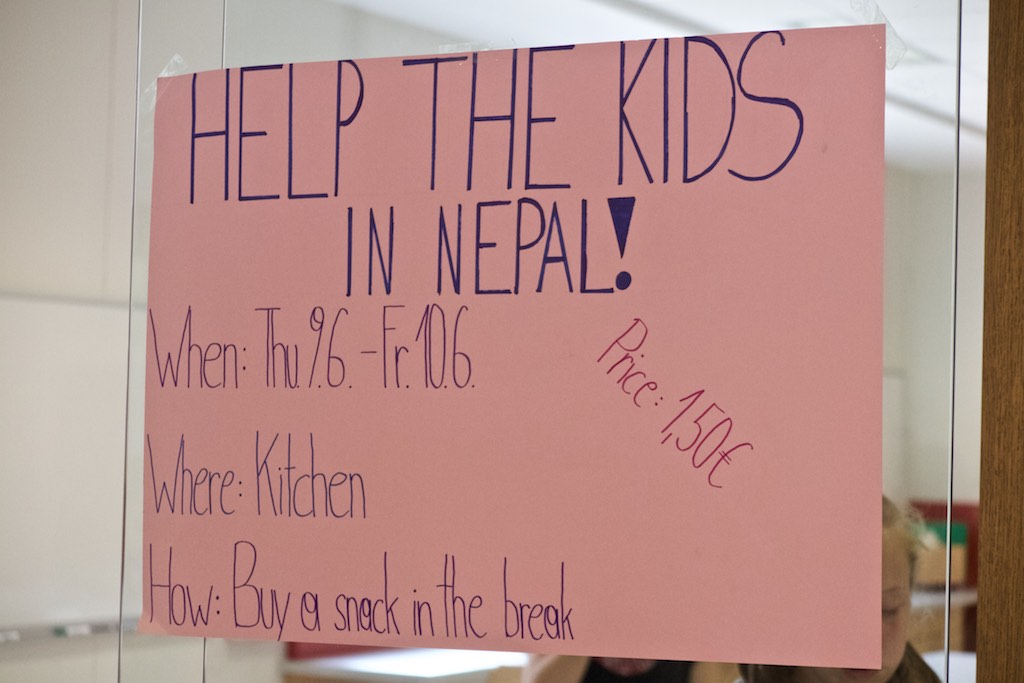 HELP THE KIDS
IN NEPAL!
When: Thu. 9.6. - Fr. 10.6.
Price: 1,50€
Where: Kitchen
How: Buy a snack in the break